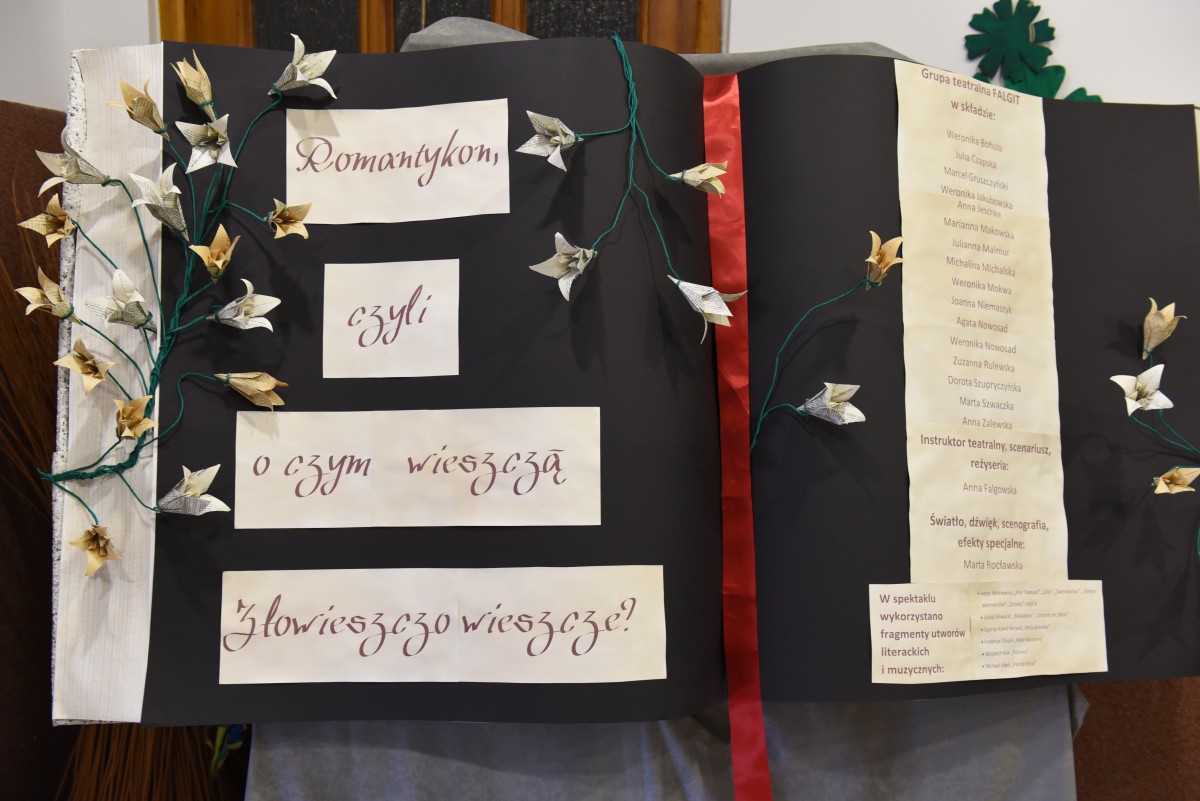 Romantykon,
czyli
o czym wieszczą
Złowieszczo wieszcze?
Grupa teatralna FALGIT
w składzie:
Weronika Bohula
Julia Czapska
Marcel Gruszczyński
Weronika Jakubowska
Anna Jeschke
Marianna Makowska
Julianna Malmur
Michalina Michalska
Weronika Mokwa
Joanna Niemaszyk
Agata Nowosad
Weronika Nowosad
Zuzanna Rulewska
Dorota Szupryczyńska
Marta Szwaczka
Anna Zalewska
Instruktor teatralny, scenariusz,
reżyseria:
Anna Falgowska
Światło, dźwięk, scenografia,
efekty specjalne:
Marta Rocławska
W spektaklu
wykorzystano
fragmenty utworów
literackich
i muzycznych: